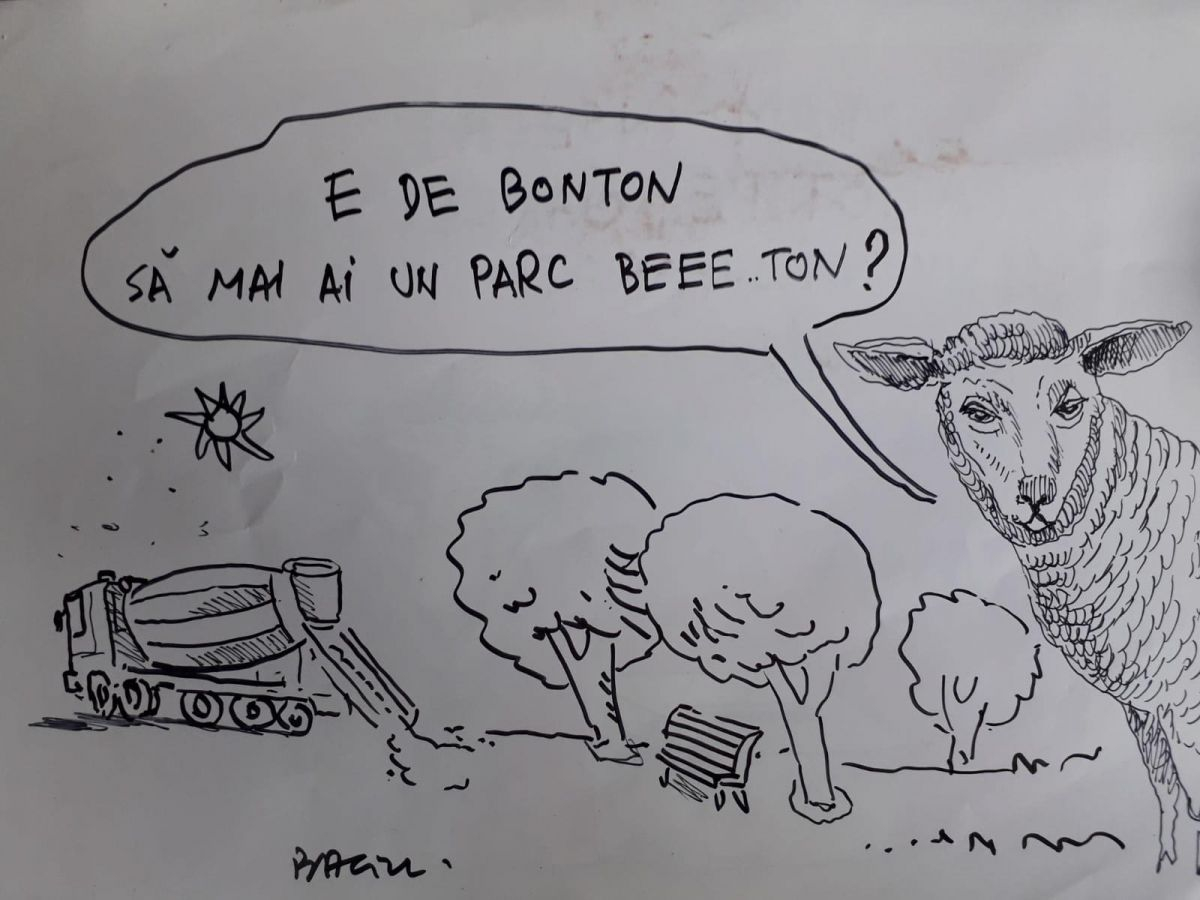 E DE BONTON
SĂ MAI AI UN PARC BEEE..TON?